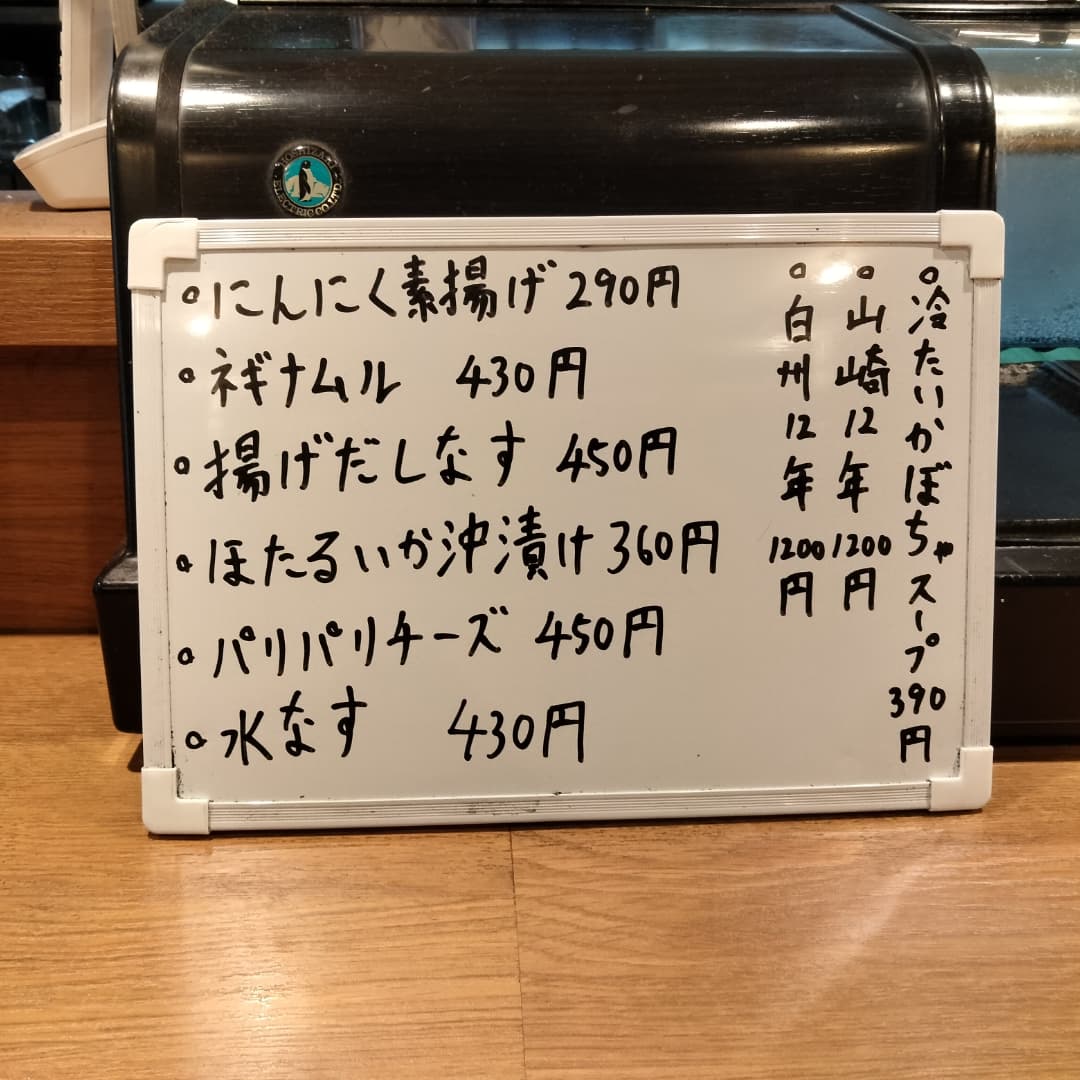 HOSHIZAKI ELECTRIC CO.LTD.
にんにく素揚げ 290円
ネギナムル 430円
揚げだしなす 450円
ほたるいか沖漬け 360円
パリパリチーズ 450円
水なす 430円
冷たいかぼちゃスープ 390円
山崎12年 1200円
白州12年 1200円